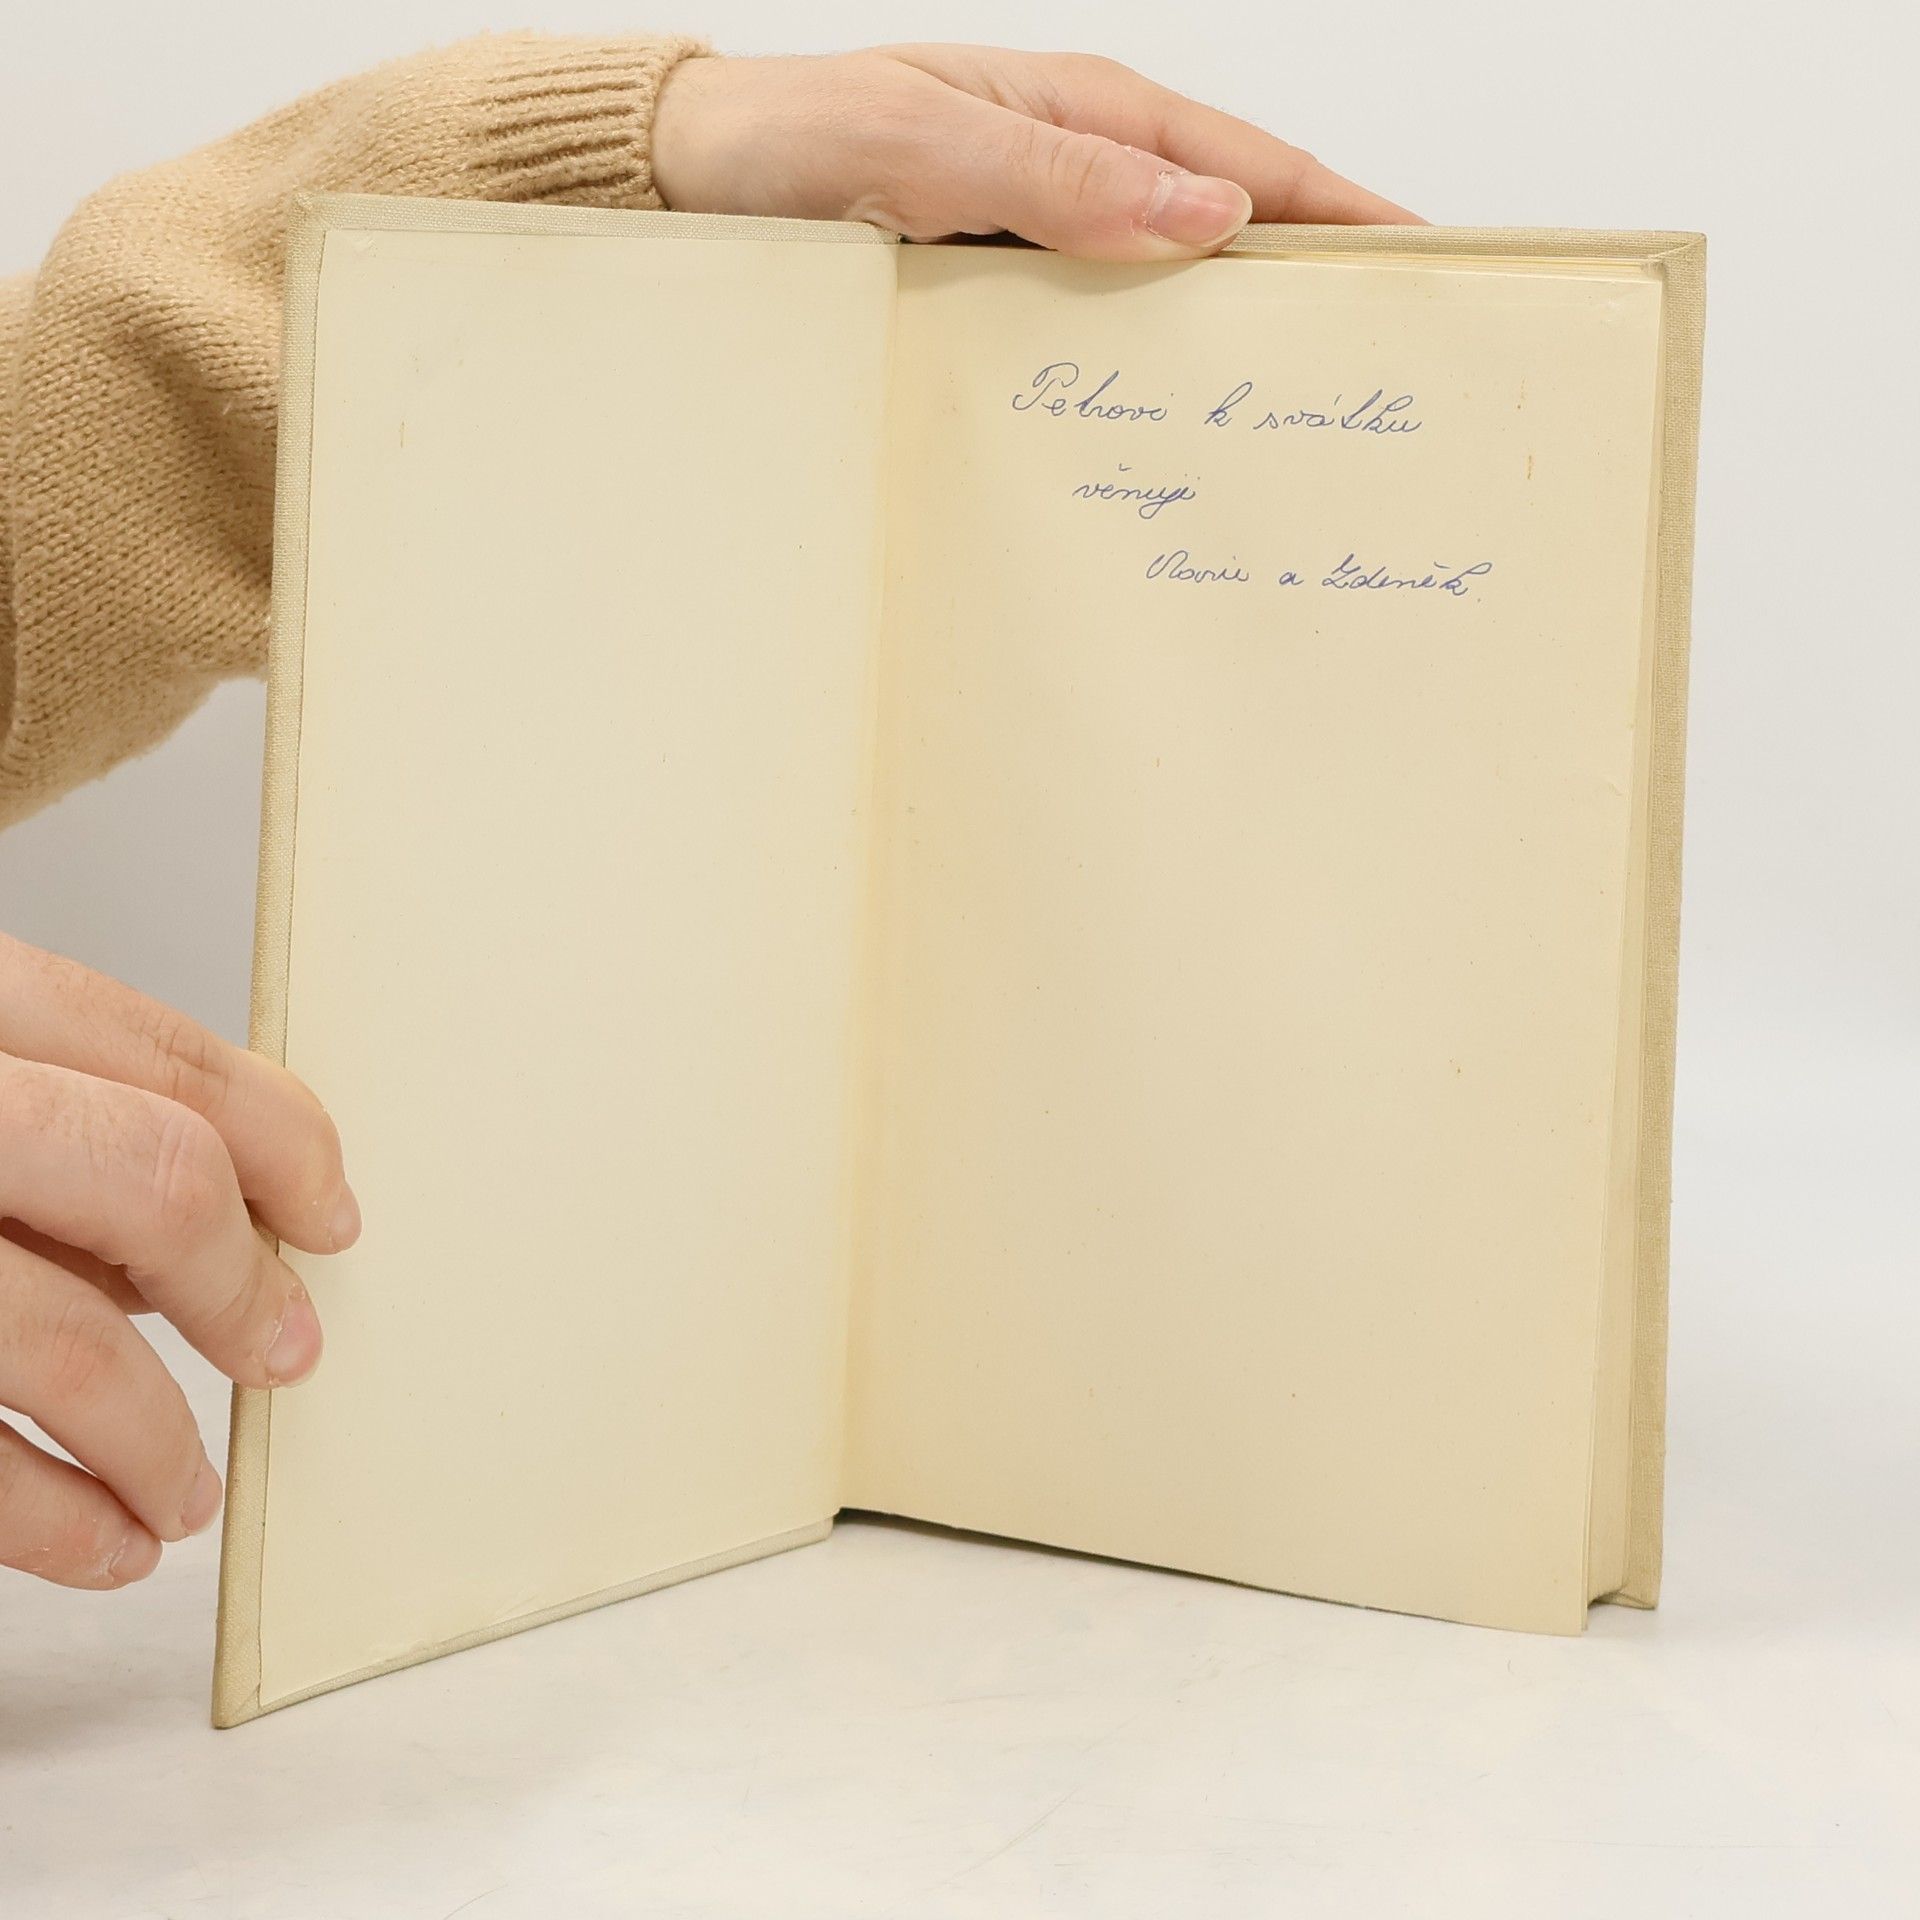 Petrovi k svátku
věnují
a Zdeněk.